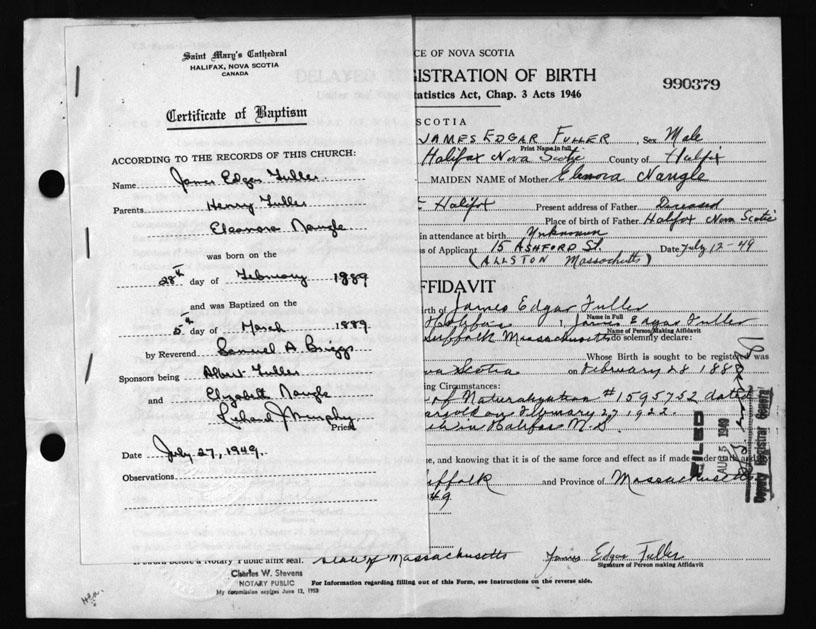 Saint Mary's Cathedral
HALIFAX, NOVA SCOTIA
CANADA
Certificate of Baptism
ACCORDING TO THE RECORDS OF THIS CHURCH:
Name James Edgar Fuller
Parents Henry Fuller
Eleanora Nangle
was born on the
28th day of February 1889
and was Baptized on the
5th day of March 1889
by Reverend Samuel A. Briggs
Sponsors being Albert Fuller
and Elizabeth Nangle
Richard J Murphy
Priest
Date July 27, 1949.
Observations
CE OF NOVA SCOTIA
DELAYED REGISTRATION OF BIRTH
990379
tatistics Act, Chap. 3 Acts 1946
SCOTIA
JAMES EDGAR FULLER, Sex Male
Print Name in full
Halifax Nova Scotie County of Halifix
MAIDEN NAME of Mother Elenora Nangle
Halifox Present address of Father Diseased
Place of birth of Father Halifox Nova Scotie
in attendance at birth Unknown
s of Applicant 15 ASHFORD St. Date July 12-49
(ALLSTON Massachetts)
FFIDAVIT
irth of James Edgar Fuller
Name in Full
Halifax, James Edgar Fuller
Name of Person Making Affidavit
Suffolk Massachusetts do solemnly declare:
Whose Birth is sought to be registered was
va Scotia on February 28 188
ing Circumstances:
of Naturalization #1595752 dated
on February 27, 1922.
in Halifax N.S.
ue, and knowing that it is of the same force and effect as if made under oath and
uffolk and Province of Massachusetts
49
FILED
AUG 5 1949
Deputy Registrar General
If sworn before a Notary Public affix seal. State of Massachusetts James Edgar Fuller
Signature of Person making Affidavit
Charles W. Stevens
NOTARY PUBLIC
My commission expires June 12, 1953
For Information regarding filling out of this Form, see Instructions on the reverse side.